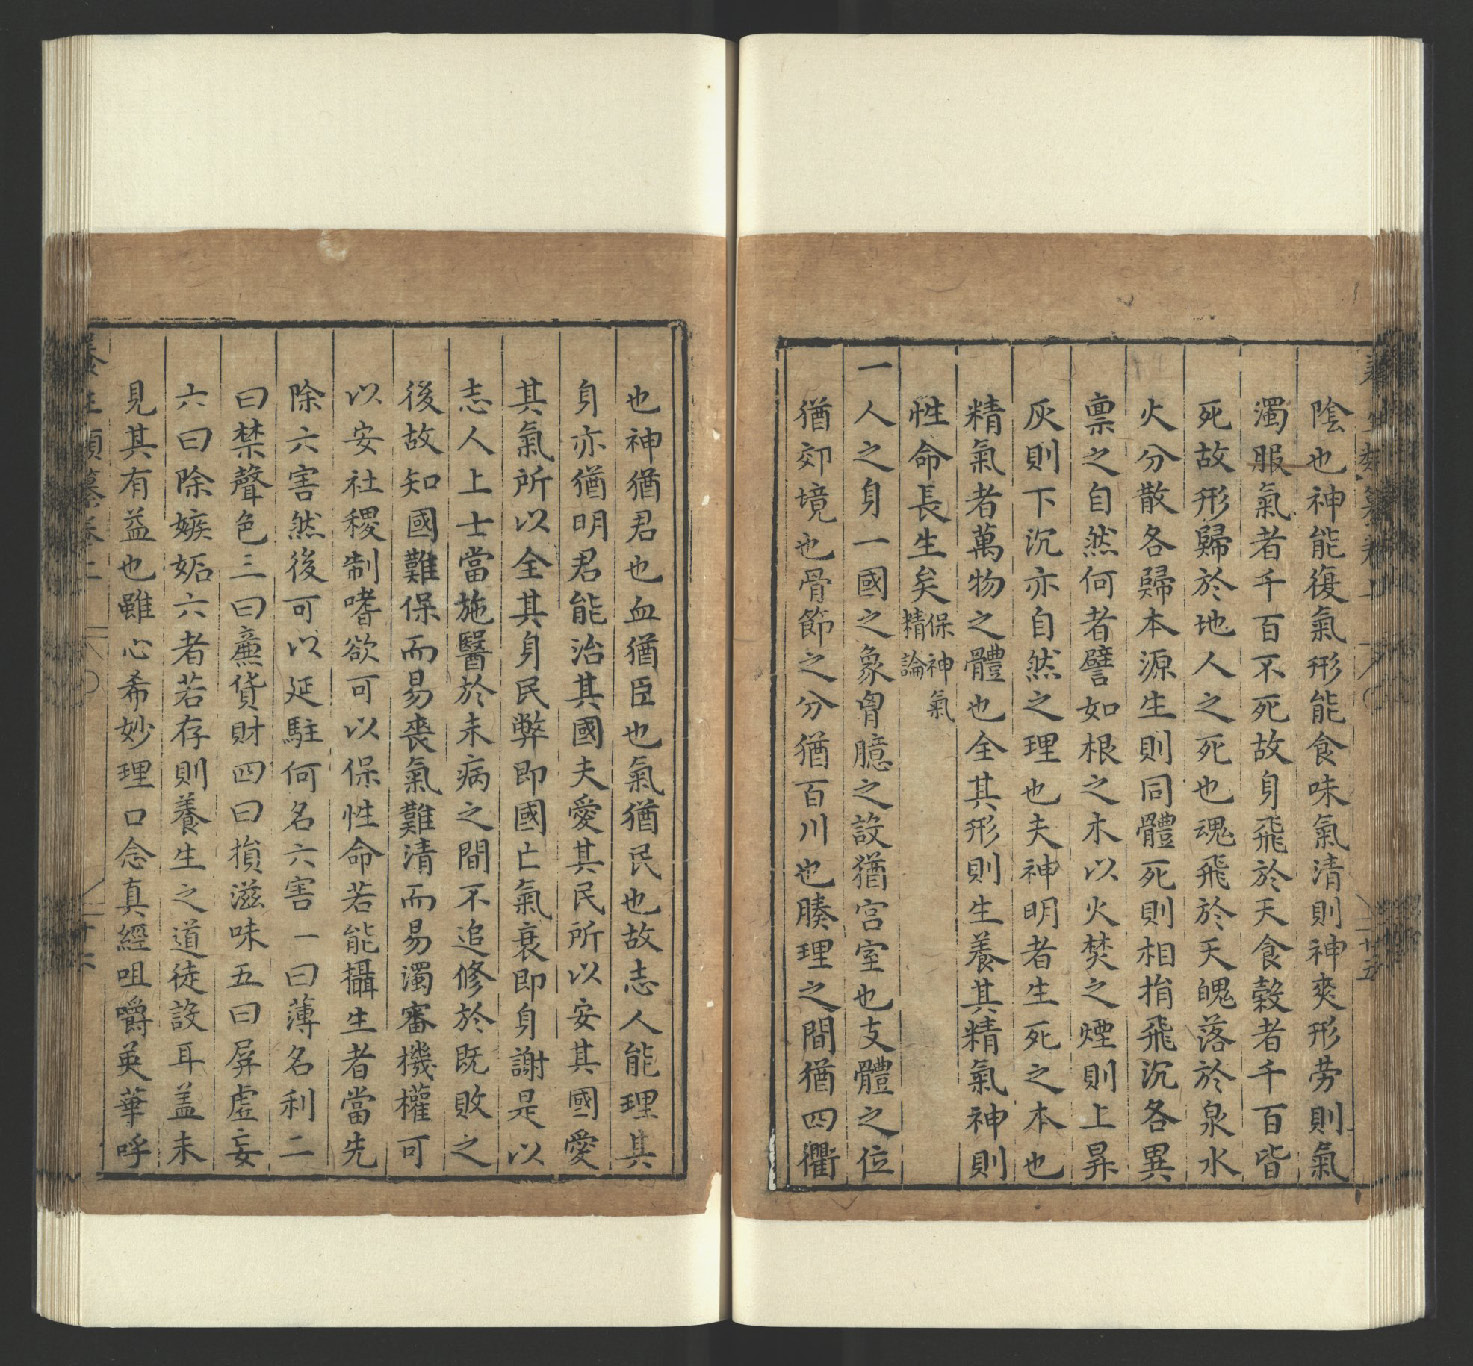 陰也神能復氣形能食味氣清則神爽形勞則氣
濁服氣者千百不死故身飛於天食穀者千百皆
死故形歸於地人之死也魂飛於天魄落於泉水
火分散各歸本源生則同體死則相捐飛沉各異
禀之自然何者譬如根之木以火焚之煙則上昇
灰則下沉亦自然之理也夫神明者生死之本也
精氣者萬物之體也全其形則生養其精氣神則
性命長生矣保神氣精論
一人之身一國之象胷臆之設猶宫室也支體之位
猶郊境也骨節之分猶百川也腠理之間猶四衢
也神猶君也血猶臣也氣猶民也故志人能理其
身亦猶明君能治其國夫愛其民所以安其國愛
其氣所以全其身民弊即國亡氣衰即身謝是以
志人上士當施醫於未病之間不追修於既敗之
後故知國難保而易喪氣難清而易濁審機權可
以安社稷制嗜欲可以保性命若能攝生者當先
除六害然後可以延駐何名六害一曰薄名利二
曰禁聲色三曰廉貨財四曰損滋味五曰屏虛妄
六曰除嫉妬六者若存則養生之道徒設耳盖未
見其有益也雖心希妙理口念真經咀嚼英華呼